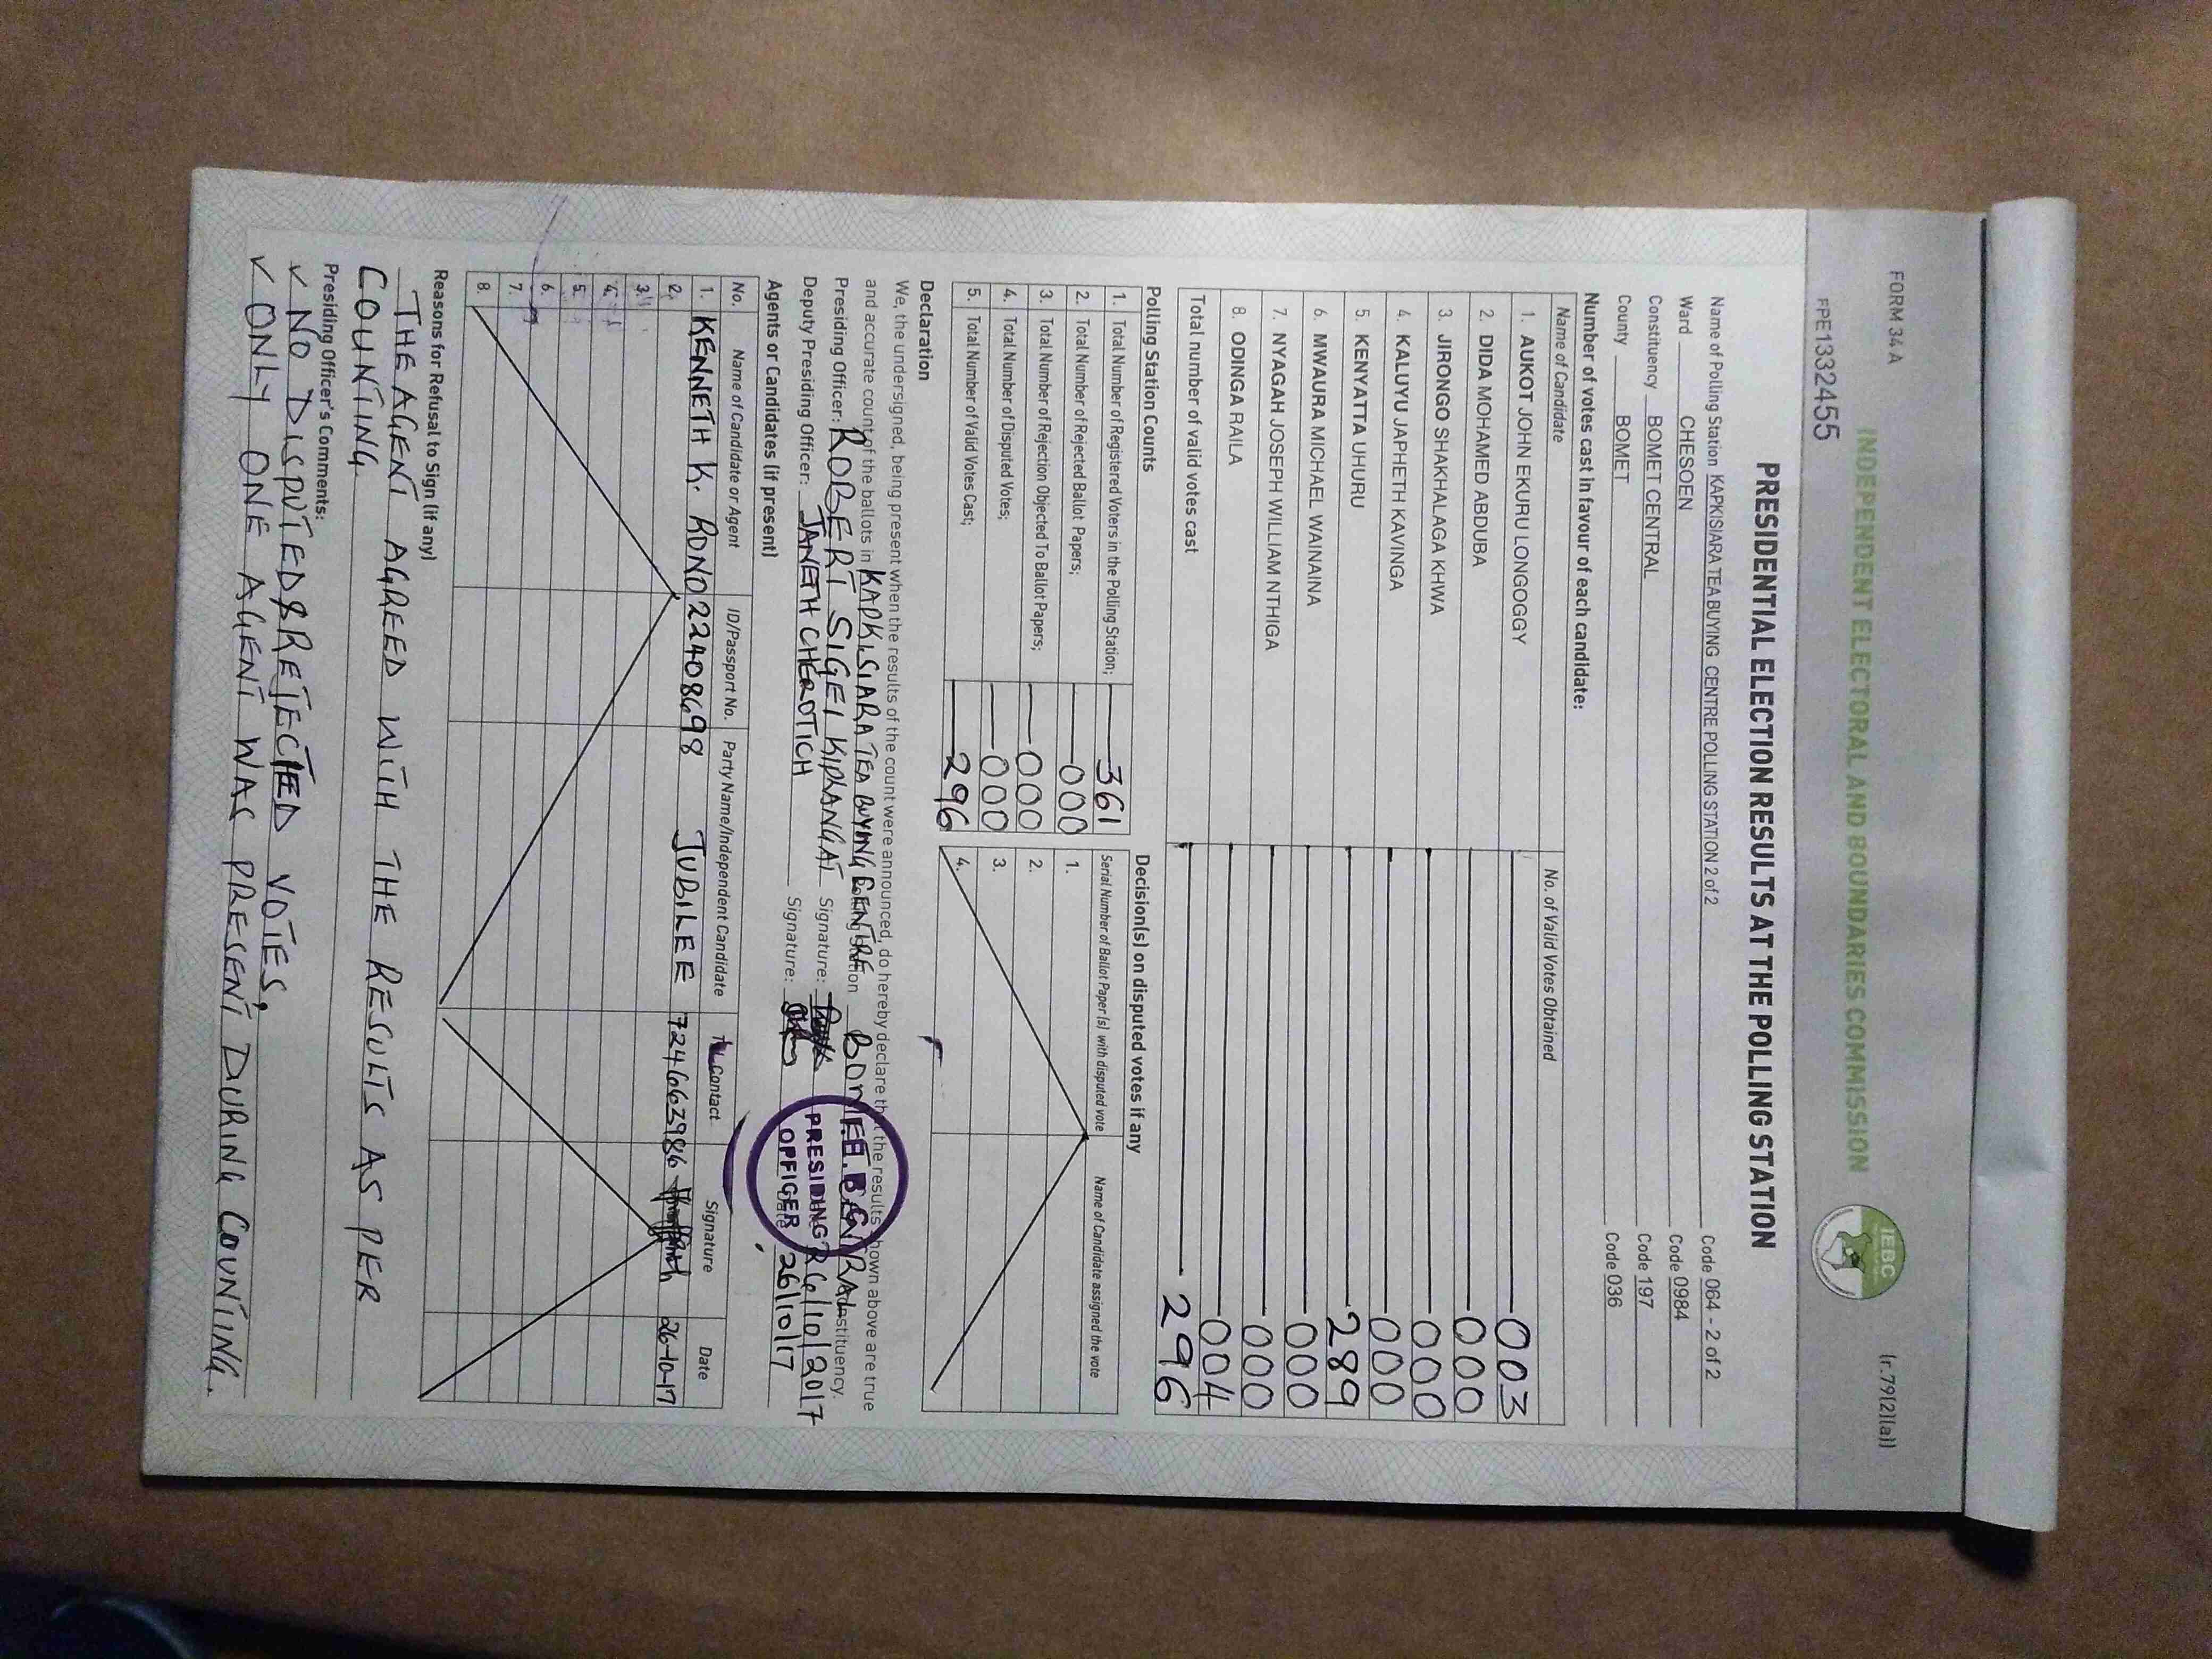 FORM 34 A
(r.79(2)(a))
FPE1332455
INDEPENDENT ELECTORAL AND BOUNDARIES COMMISSION
IEBC
PRESIDENTIAL ELECTION RESULTS AT THE POLLING STATION
Name of Polling Station KAPKISIARA TEA BUYING CENTRE POLLING STATION 2 of 2 Code 064 - 2 of 2
Ward CHESOEN Code 0984
Constituency BOMET CENTRAL Code 197
County BOMET Code 036
Number of votes cast in favour of each candidate:
Name of Candidate No. of Valid Votes Obtained
1. AUKOT JOHN EKURU LONGOGGY 003
2. DIDA MOHAMED ABDUBA 000
3. JIRONGO SHAKHALAGA KHWA 000
4. KALUYU JAPHETH KAVINGA 000
5. KENYATTA UHURU 289
6. MWAURA MICHAEL WAINAINA 000
7. NYAGAH JOSEPH WILLIAM NTHIGA 000
8. ODINGA RAILA 004
Total number of valid votes cast 296
Polling Station Counts
1. Total Number of Registered Voters in the Polling Station; 361
2. Total Number of Rejected Ballot Papers; 000
3. Total Number of Rejection Objected To Ballot Papers; 000
4. Total Number of Disputed Votes; 000
5. Total Number of Valid Votes Cast; 296
Decision(s) on disputed votes if any
Serial Number of Ballot Paper(s) with disputed vote Name of Candidate assigned the vote
1.
2.
3.
4.
Declaration
We, the undersigned, being present when the results of the count were announced, do hereby declare that the results shown above are true
and accurate count of the ballots in KAPKISIARA TEA BUYING CENTRE Polling Station BOMET CENTRAL Constituency.
Presiding Officer: ROBERT SIGEI KIPLANGAT Signature: Date 26/10/2017
Deputy Presiding Officer: JANETH CHEROTICH Signature: Date 26/10/17
I.E.B.C
PRESIDING
OFFICER
Agents or Candidates (if present)
No. Name of Candidate or Agent ID/Passport No. Party Name/Independent Candidate Contact Signature Date
1. KENNETH K. RONO 22408698 JUBILEE 724663986 26-10-17
2.
3.
4.
5.
6.
7.
8.
Reasons for Refusal to Sign (if any)
THE AGENT AGREED WITH THE RESULTS AS PER
COUNTING.
Presiding Officer's Comments:
✓ NO DISPUTED & REJECTED VOTES,
✓ ONLY ONE AGENT WAS PRESENT DURING COUNTING.